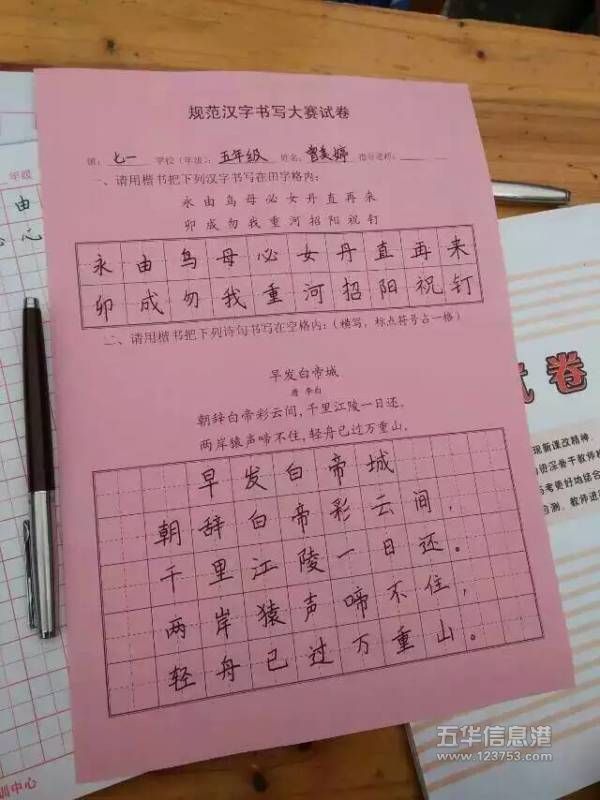 规范汉字书写大赛试卷
镇：七一 学校（年级）：五年级 姓名：曾美婷 指导老师：
一、请用楷书把下列汉字书写在田字格内：
永 由 鸟 母 必 女 丹 直 再 来
卯 成 勿 我 重 河 招 阳 祝 钉
永 由 鸟 母 必 女 丹 直 再 来
卯 成 勿 我 重 河 招 阳 祝 钉
二、请用楷书把下列诗句书写在空格内：（横写，标点符号占一格）
早发白帝城
唐 李白
朝辞白帝彩云间，千里江陵一日还。
两岸猿声啼不住，轻舟已过万重山。
早发白帝城
朝辞白帝彩云间，
千里江陵一日还。
两岸猿声啼不住，
轻舟已过万重山。
年级
由
心
训中心
试卷
现新课改精神，
五华信息港
www.123753.com